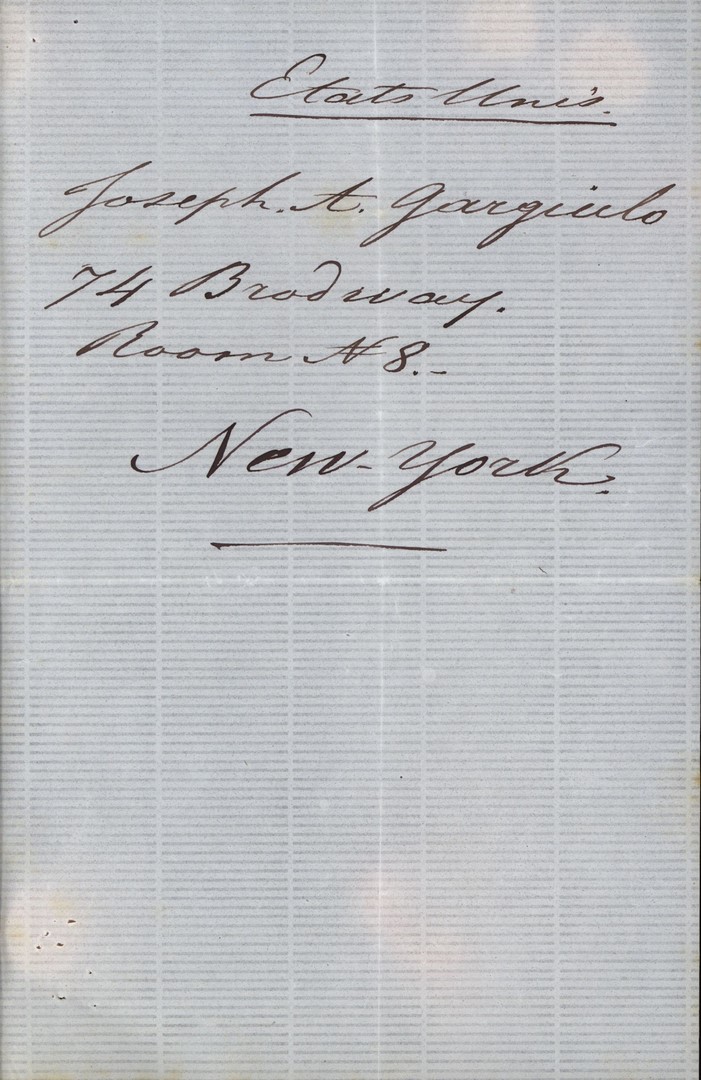 Etats Unis.
Joseph. A. Gargiulo
74 Brodway.
Room N 8.-
New-York.